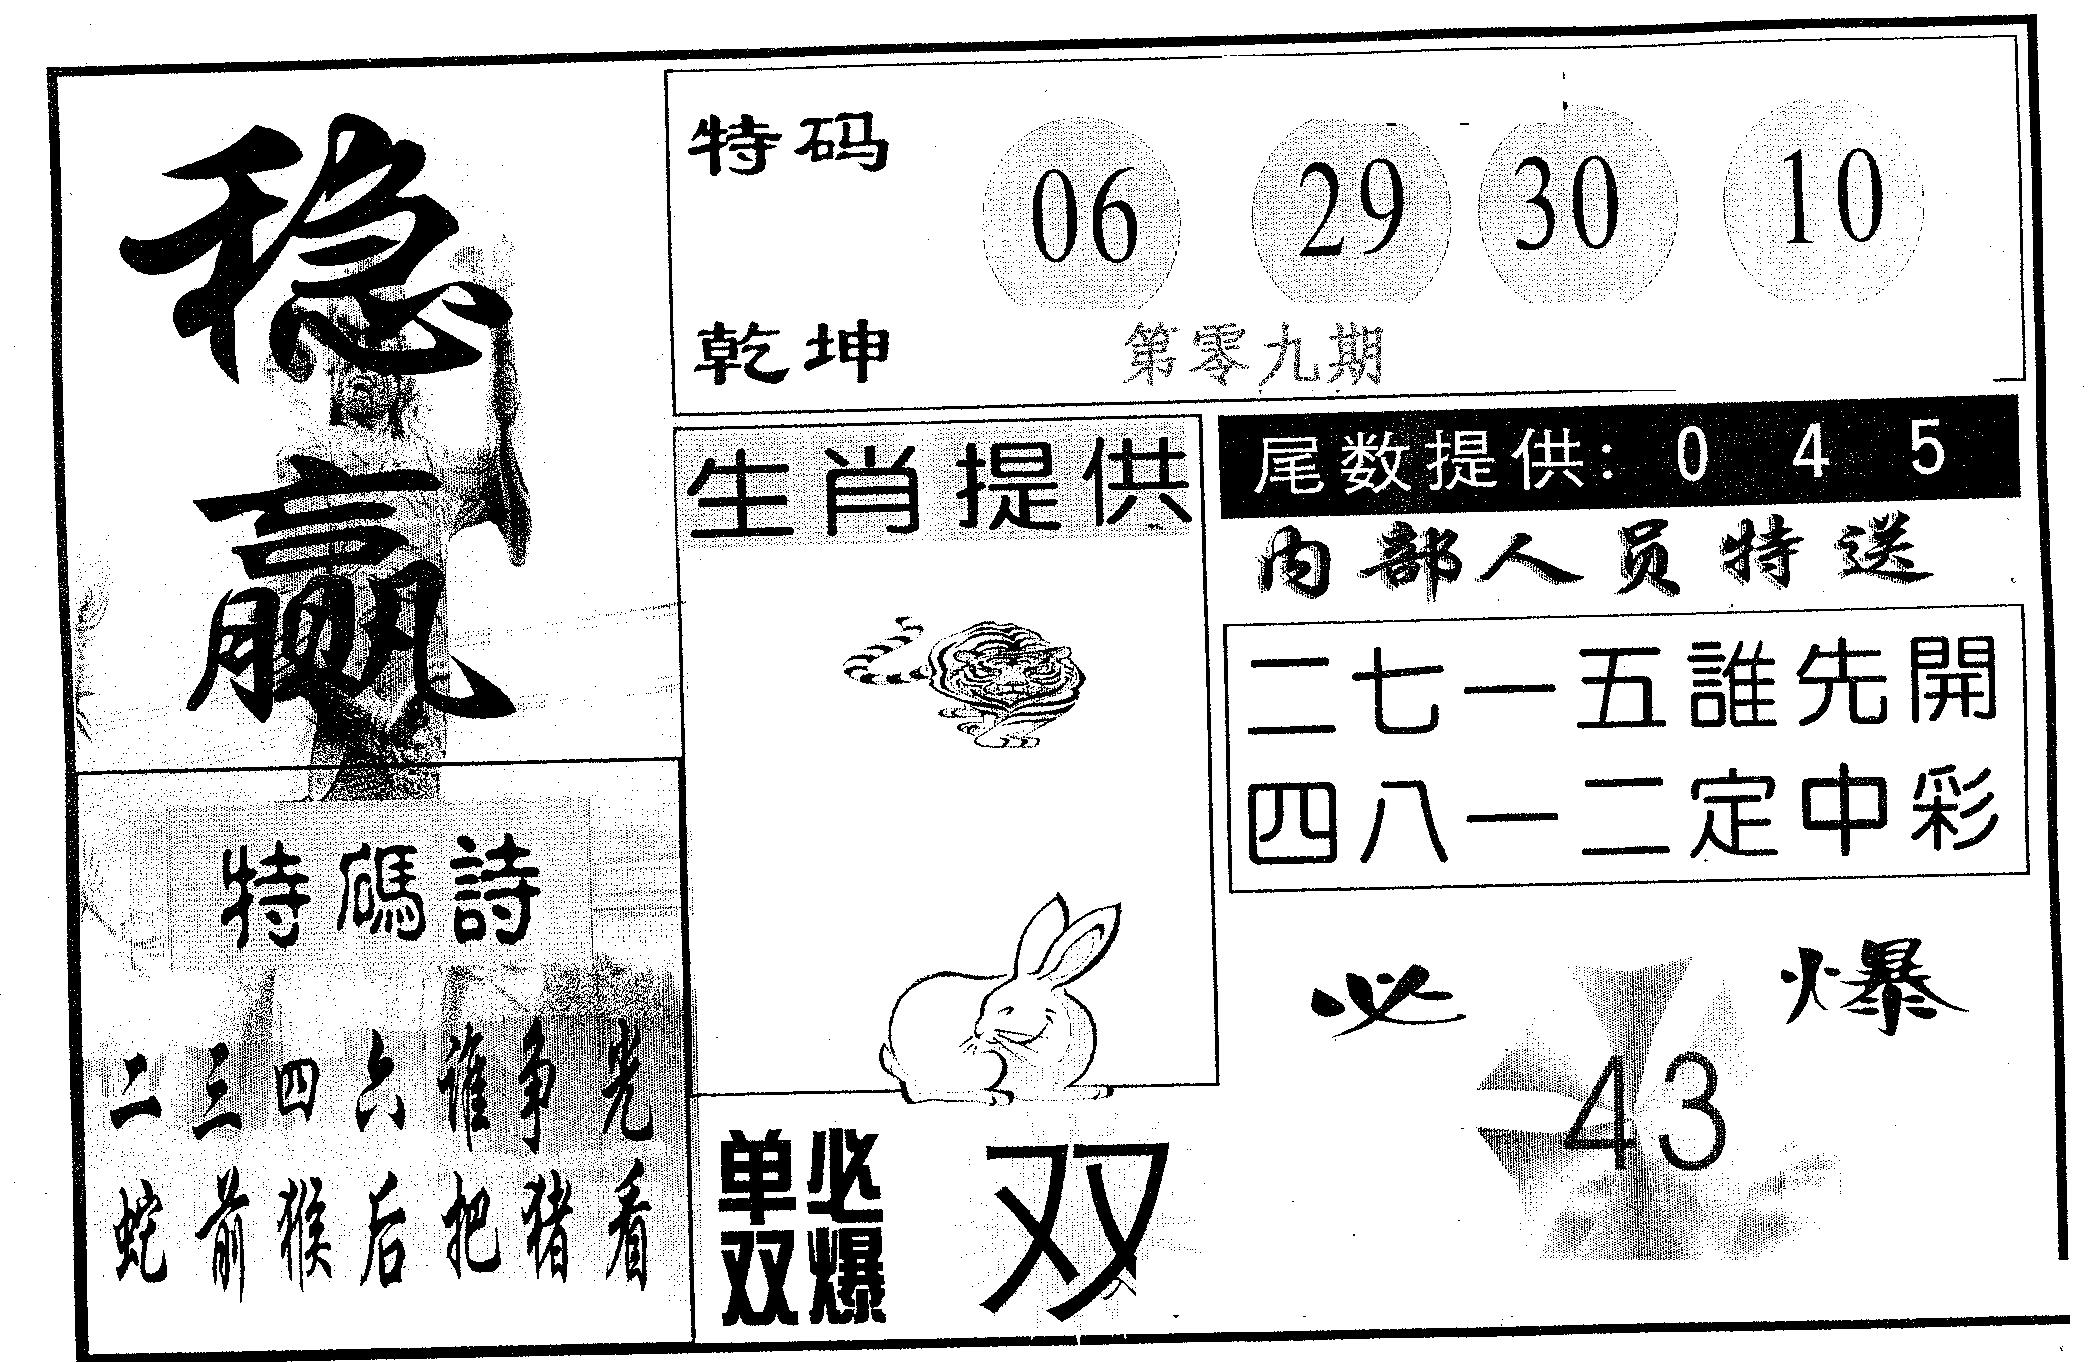 稳
赢
特码 06 29 30 10
乾坤 第零九期
生肖提供
尾数提供: 0 4 5
内部人员特送
二七一五誰先開
四八一二定中彩
特碼詩
二三四六谁争先
蛇前猴后把猪看
必爆
43
单必
双爆
双